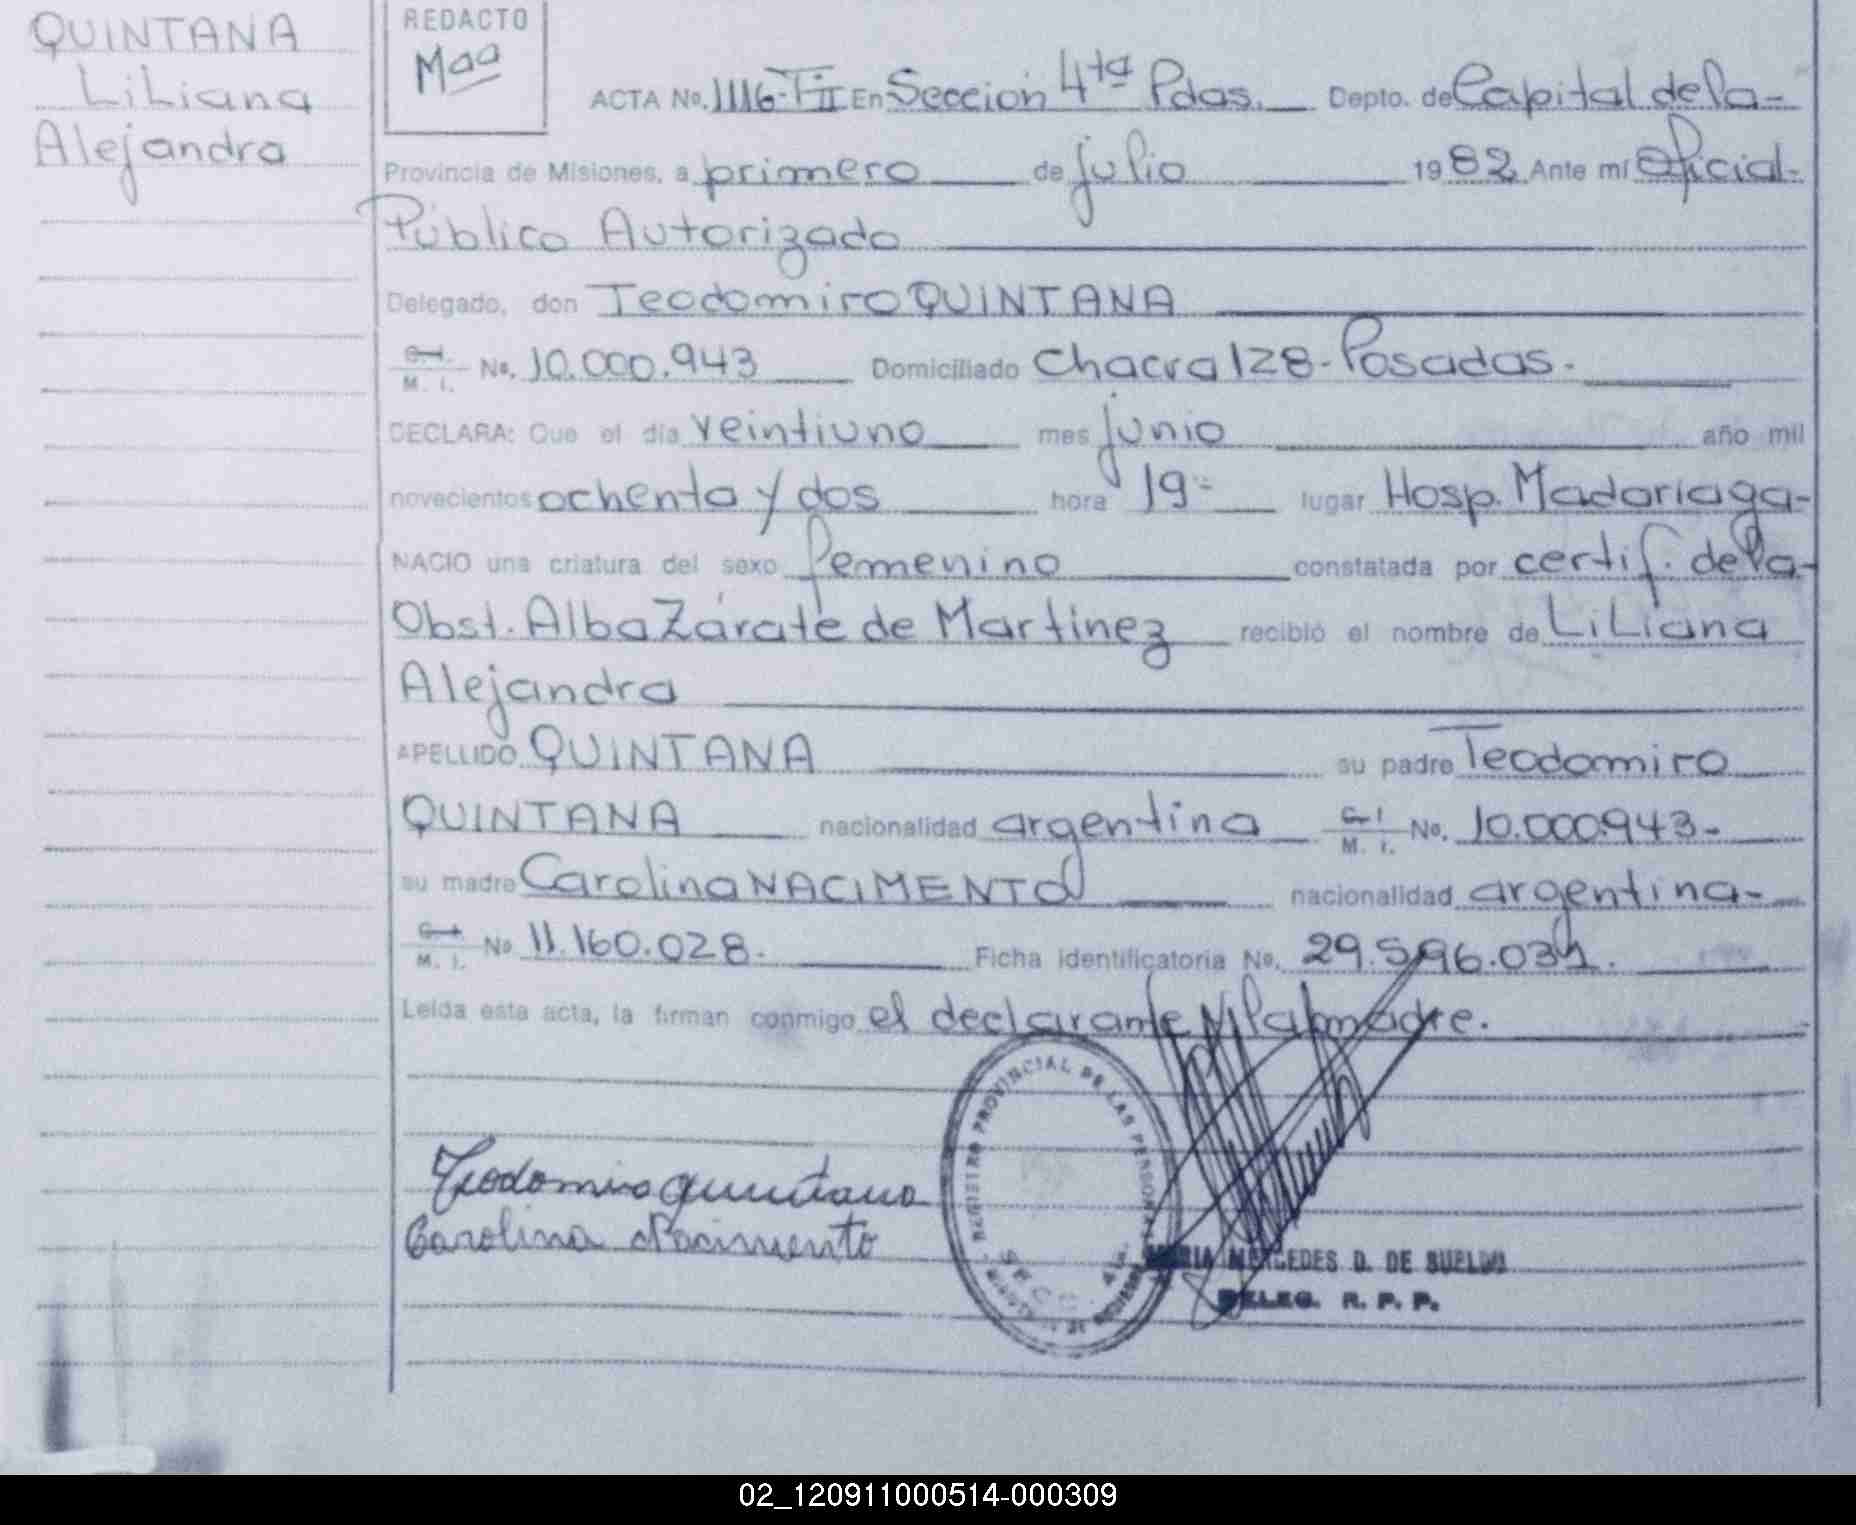 QUINTANA
LiLiana
Alejandra
REDACTO
Maa
ACTA No. 1116-T-II En Sección 4ta Pdas. Depto. de Capital de la-
Provincia de Misiones, a primero de julio 1982 Ante mí Oficial-
Público Autorizado
Delegado, don Teodomiro QUINTANA
C. I. M. I. No. 10.000.943 Domiciliado Chacra 128-Posadas.
DECLARA: Que el día veintiuno mes junio año mil
novecientos ochenta y dos hora 19- lugar Hosp. Madariaga-
NACIO una criatura del sexo femenino constatada por certif. de la-
Obst. Alba Zárate de Martinez recibió el nombre de LiLiana
Alejandra
APELLIDO QUINTANA su padre Teodomiro
QUINTANA nacionalidad argentina C. I. M. I. No. 10.000.943-
su madre Carolina NACIMENTO nacionalidad argentina-
C. I. M. I. No 11.160.028. Ficha identificatoria No. 29.596.031.
Leída esta acta, la firman conmigo el declarante y la madre.
Teodomiro Quintana
Carolina Nacimento
REGISTRO PROVINCIAL DE LAS PERSONAS
SECC. 4ta.
MARIA MERCEDES D. DE SUELDO
DELEG. R. P. P.
02_120911000514-000309